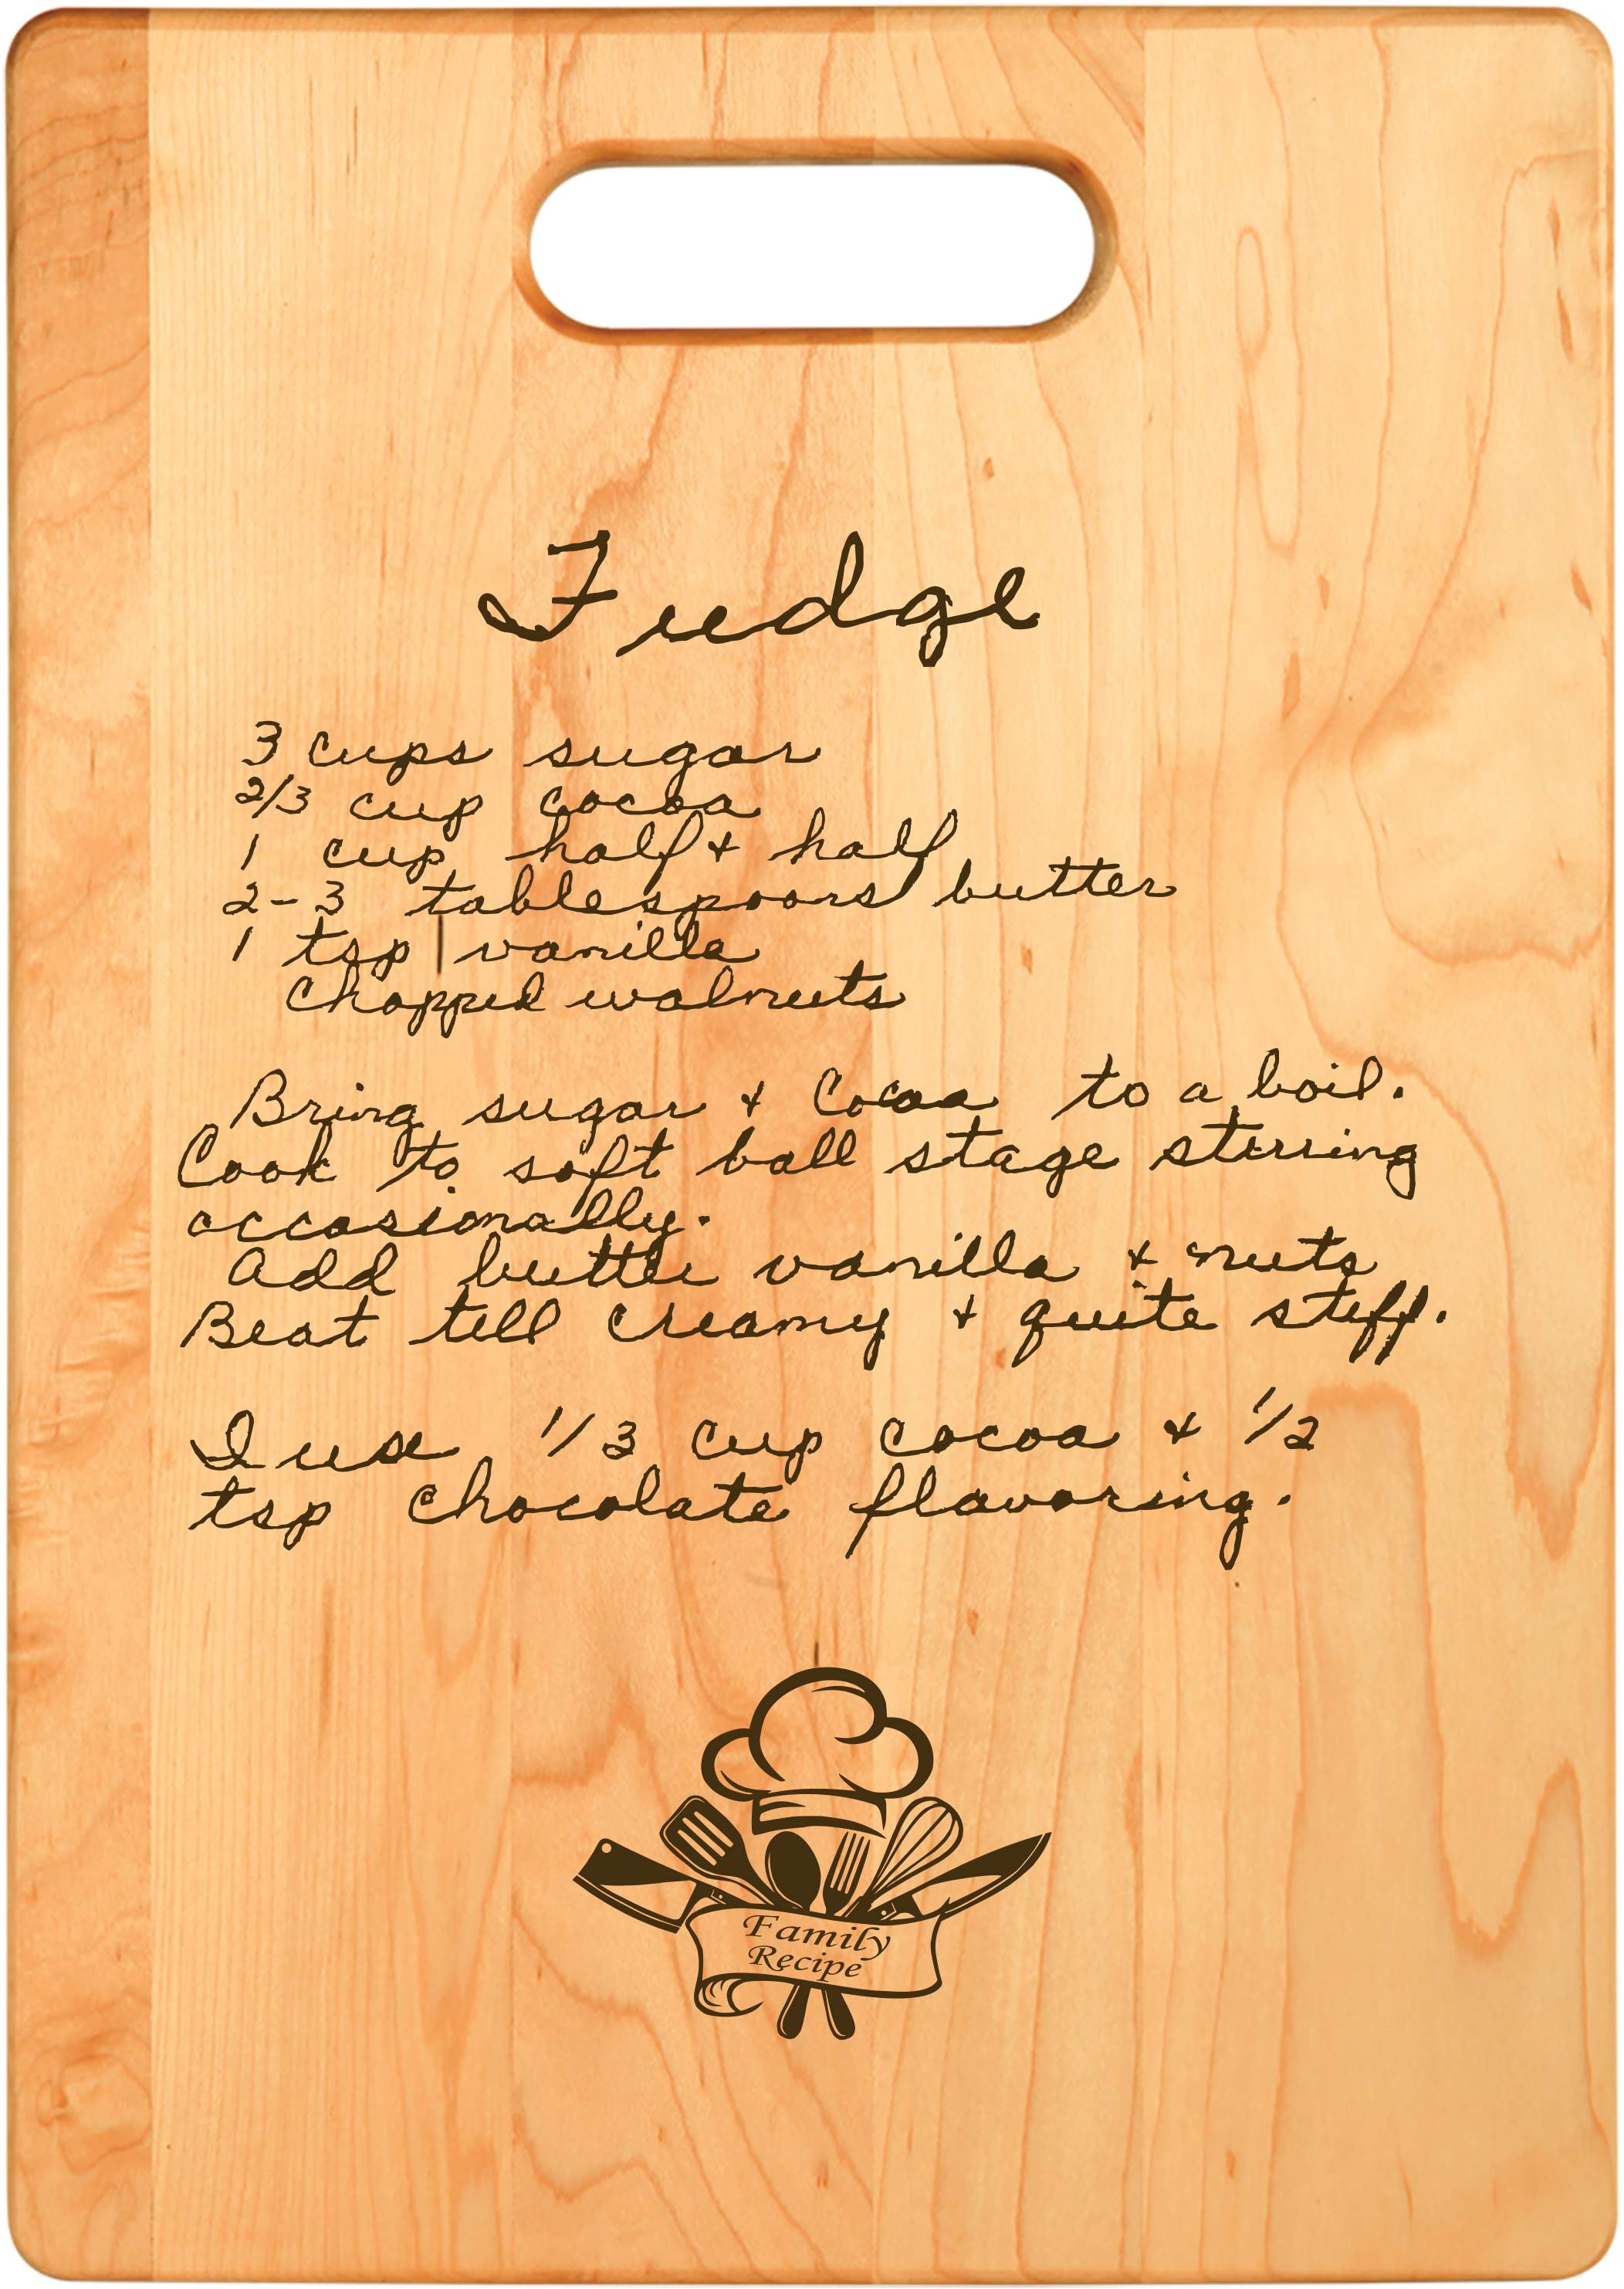 Fudge
3 cups sugar
2/3 cup cocoa
1 cup half + half
2-3 tablespoons butter
1 tsp vanilla
chopped walnuts
Bring sugar + Cocoa to a boil.
Cook to soft ball stage stirring
occasionally.
Add butter vanilla + nuts
Beat till creamy + quite stiff.
I use 1/3 cup cocoa + 1/2
tsp chocolate flavoring.
Family
Recipe